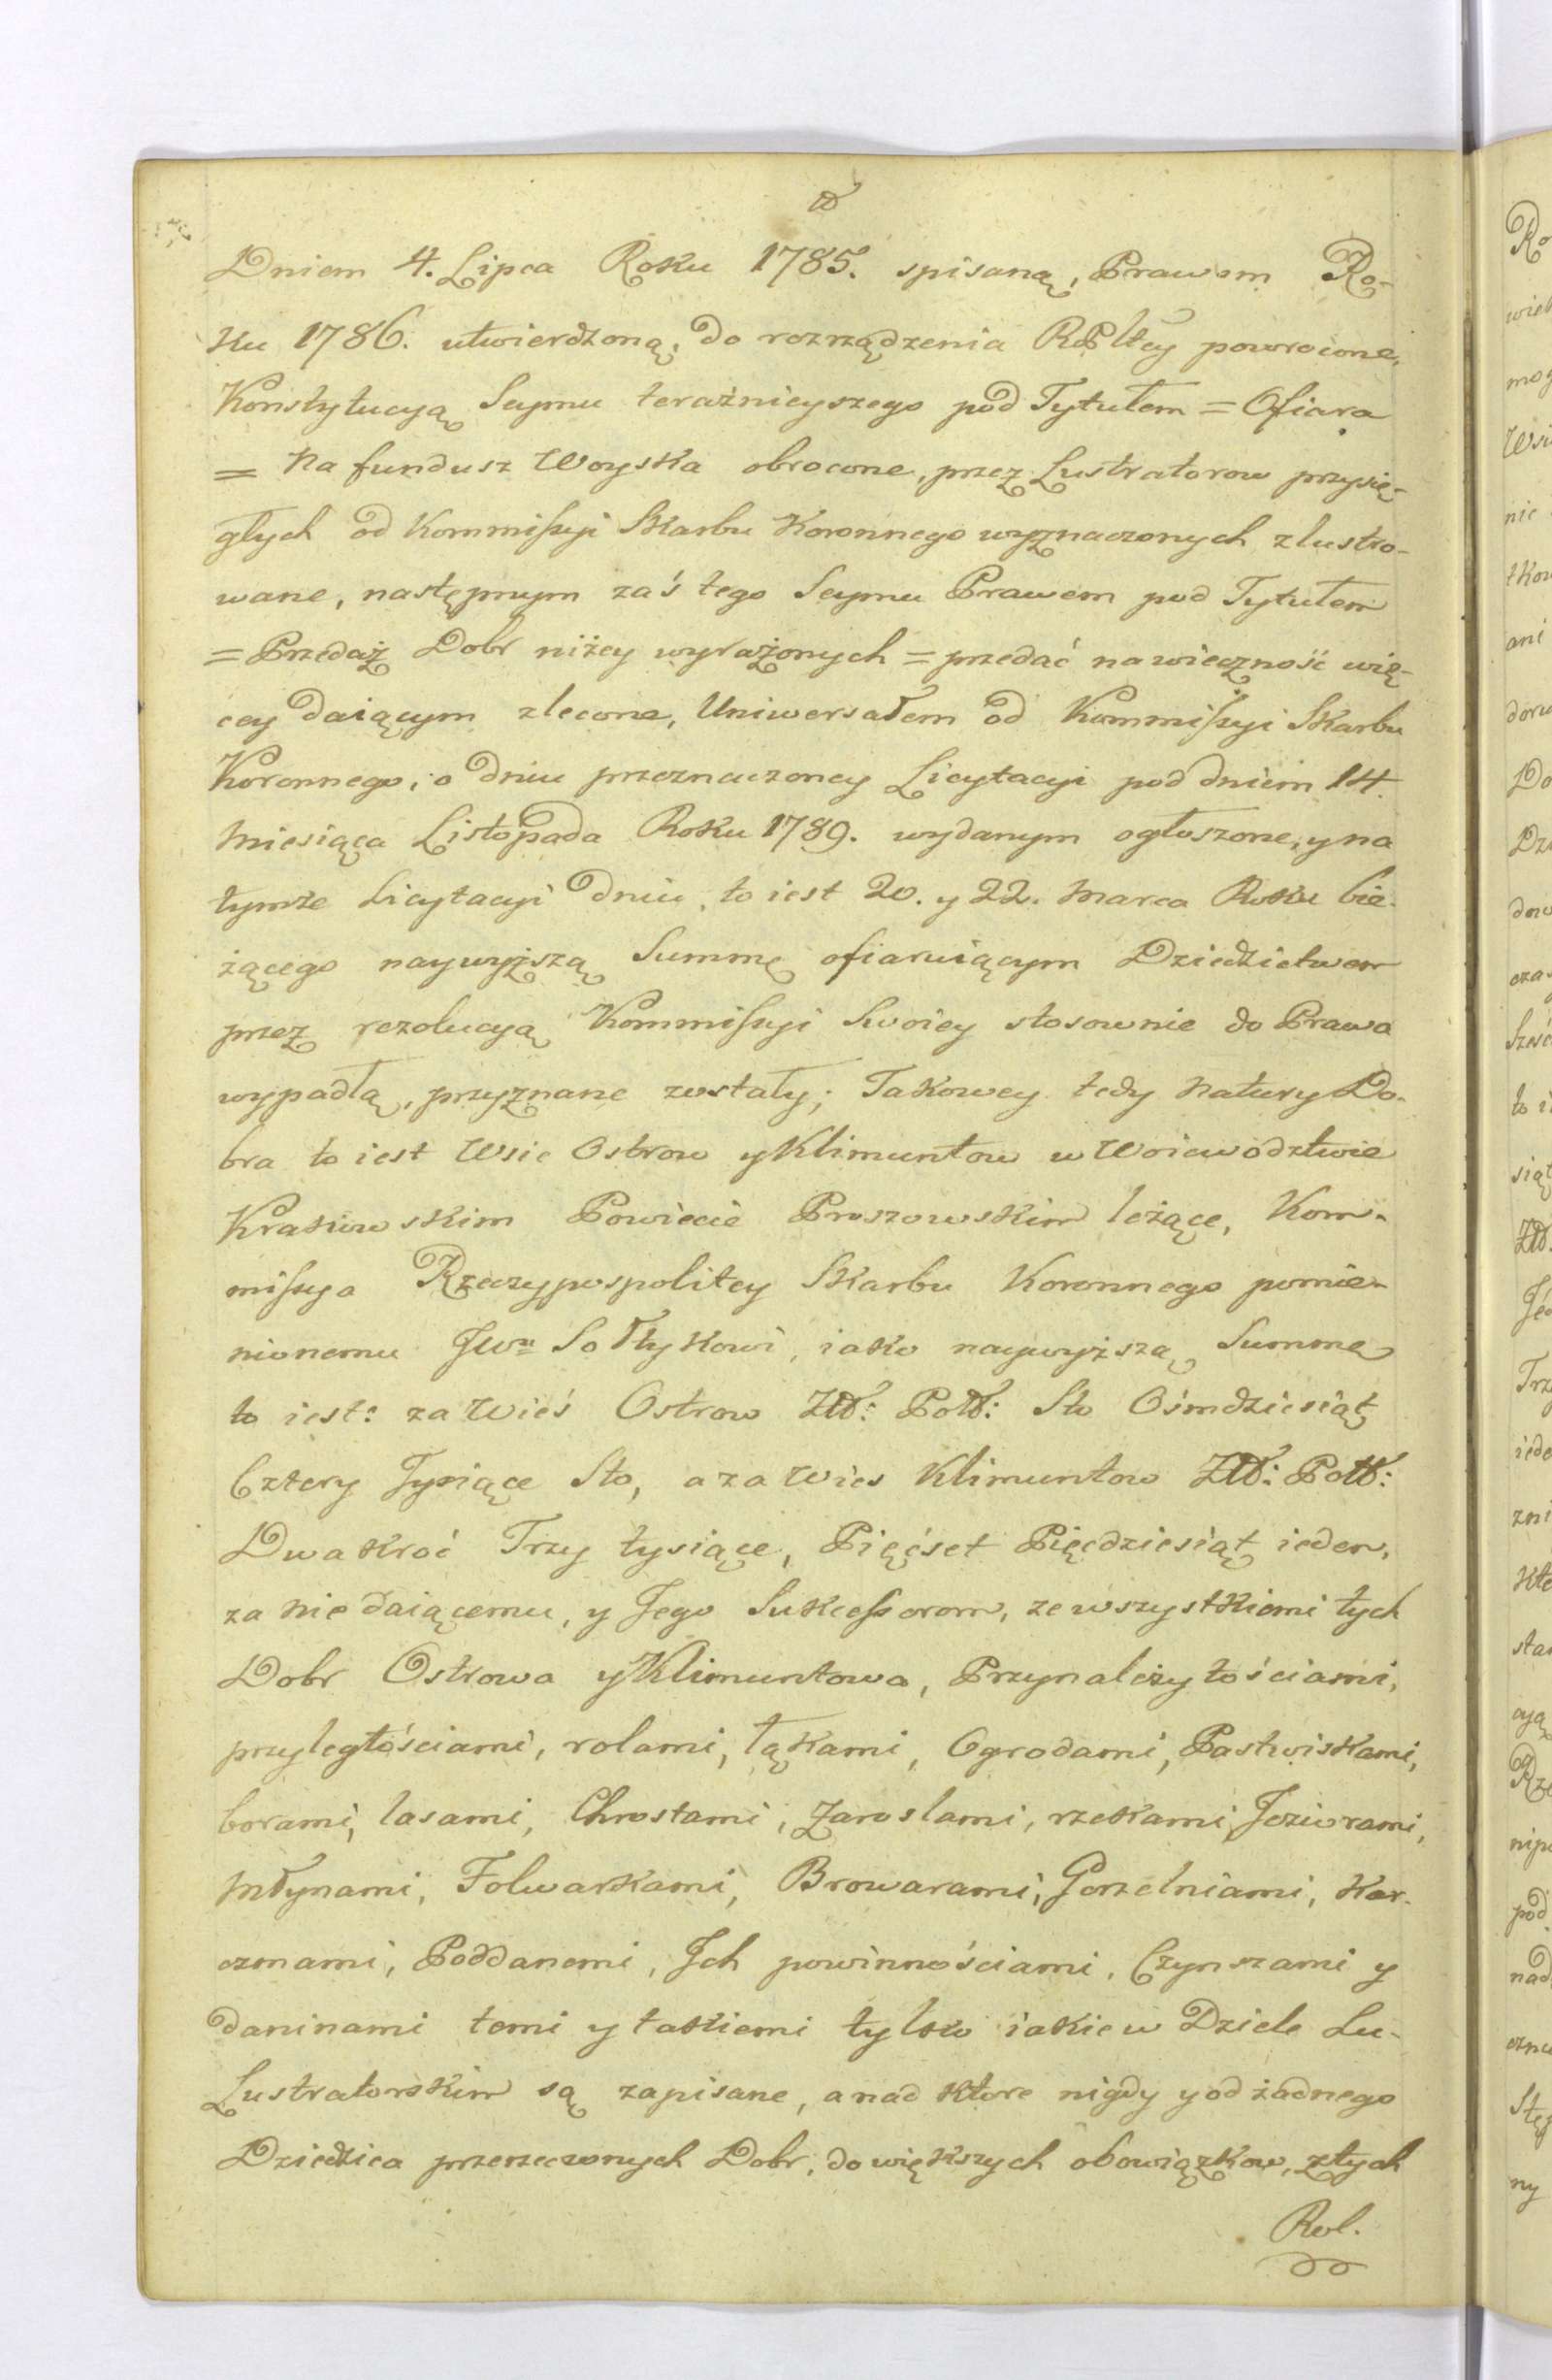 Dniem 4. Lipca Roku 1785. spisaną, Prawem Ro-
ku 1786. utwierdzoną, do rozrządzenia RPltey powrocone,
Konstytucyą Seymu teraźnieyszego pod Tytułem = Ofiara
= Na fundusz Woyska obrocone, przez Lustratorow przysię-
głych od Kommissyi Skarbu Koronnego wyznaczonych zlustro-
wane, następnym zaś tego Seymu Prawem pod Tytułem
= Przedaż Dobr niżey wyrażonych = przedać na wieczność wię-
cey daiącym zlecone, Uniwersałem od Kommissyi Skarbu
Koronnego, o dniu przeznaczoney Licytacyi pod dniem 14.
Miesiąca Listopada Roku 1789. wydanym ogłoszone, y na
tymże Licytacyi dniu, to iest 20. y 22. Marca Roku bie-
żącego naywyższą Summę ofiaruiącym Dziedzictwem
przez rezolucyą Kommissyi Swoiey stosownie do Prawa
wypadłą, przyznane zostały; Takowey tedy Natury Do-
bra to iest Wsie Ostrow y Klimuntow w Woiewodztwie
Krakowskim Powiecie Proszowskim leżące, Kom-
missya Rzeczypospolitey Skarbu Koronnego pomie-
nionemu JWu Sołtykowi, iako naywyższą Summę
to iest: za Wieś Ostrow Złł: Poll: Sto Ośmdziesiąt
Cztery Tysiące Sto, a za Wies Klimuntow Złł: Poll:
Dwakroć Trzy tysiące, Pięćset Pięćdziesiąt ieden,
za nie daiącemu, y Jego Sukcessorom, ze wszystkiemi tych
Dobr Ostrowa y Klimuntowa, Przynależytościami,
przyległościami, rolami, łąkami, Ogrodami, Pastwiskami,
borami, lasami, Chrostami, Zaroslami, rzekami, Jeziorami,
Młynami, Folwarkami, Browarami, Gorzelniami, Kar-
czmami, Poddanemi, Jch powinnościami, Czynszami y
daninami temi y takiemi tylko iakie w Dziele Lu-
Lustratorskim są zapisane, a nad ktore nigdy y od żadnego
Dziedzica przerzeczonych Dobr, do większych obowiązkow, z tych
Rol.